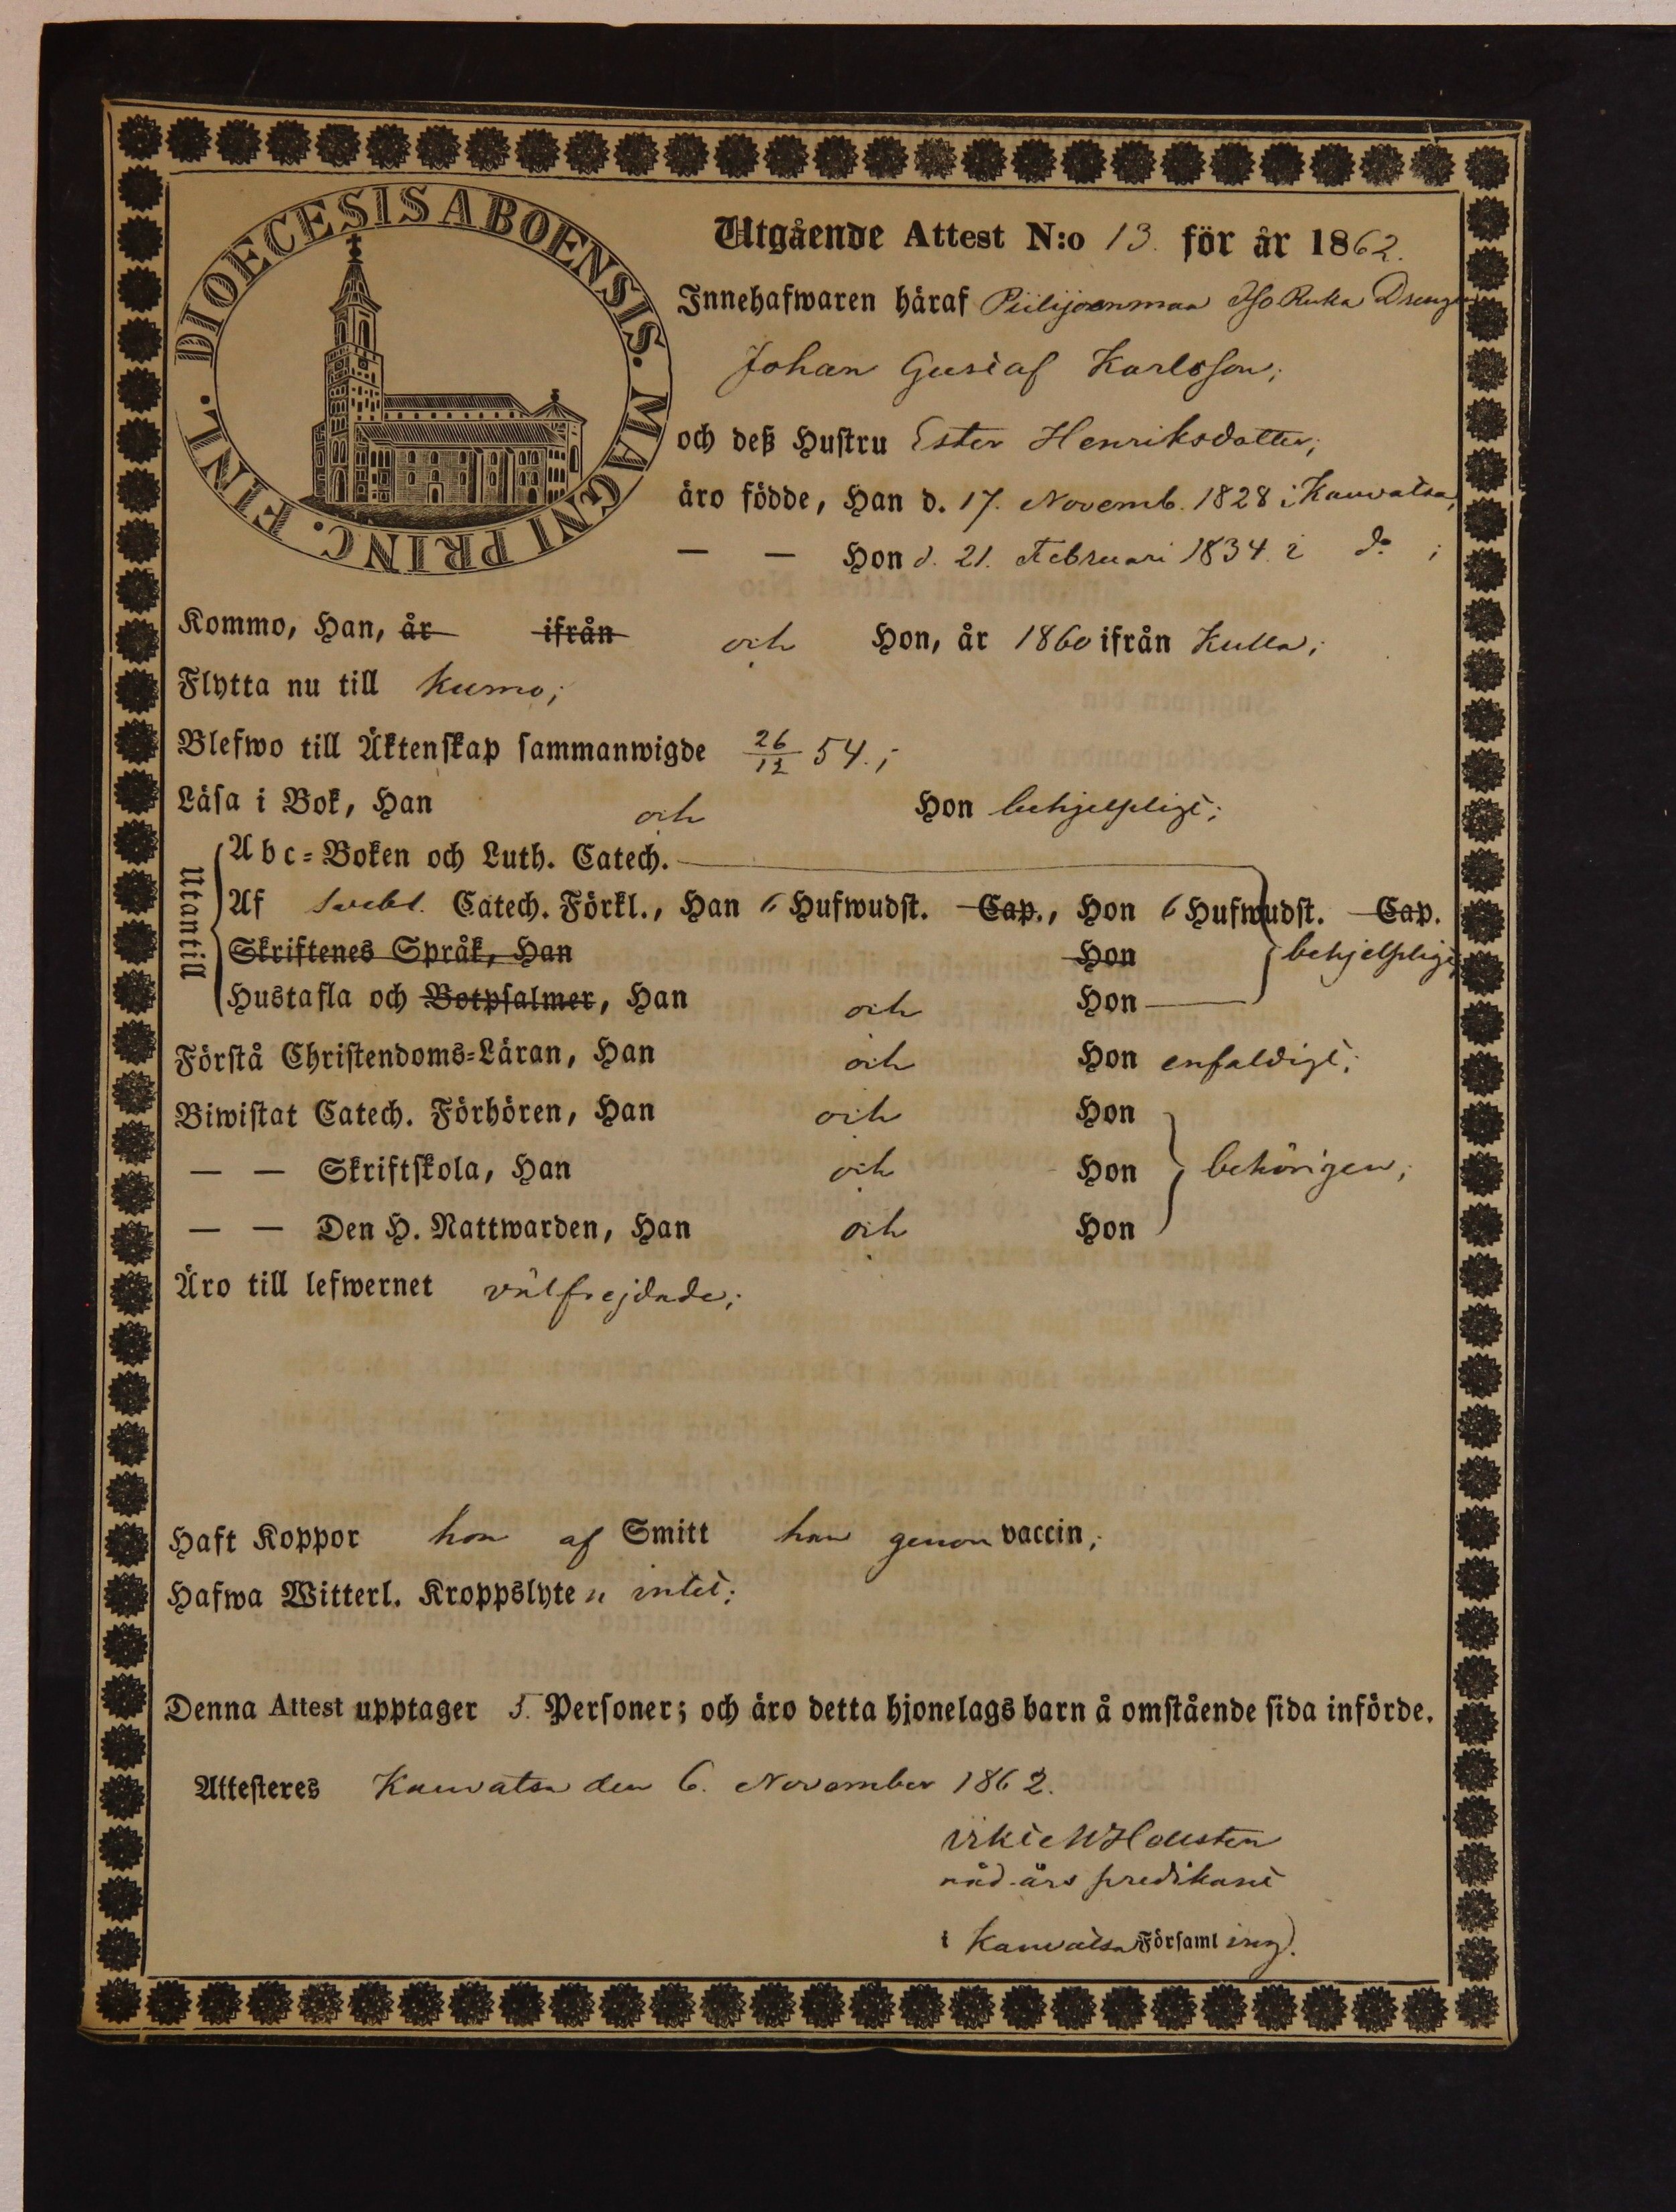 DIOECESIS ABOENSIS. MAGNI PRINC. FINL.
Utgående Attest N:o 13. för år 1862.
Innehafwaren häraf Piilijoenmaa Iso Ruka Dreng
Johan Gustaf Karlsson;
och deß Hustru Ester Henriksdotter;
äro födde, Han d. 17. Novemb. 1828 i Kauvatsa,
— — Hon d. 21. Februari 1834. i do ;
Kommo, Han, år ifrån och Hon, år 1860 ifrån Kulla;
Flytta nu till Kumo;
Blefwo till Äktenskap sammanwigde 26/12 54.;
Läsa i Bok, Han och Hon behjelpligt;
Utantill
Abc-Boken och Luth. Catech.
Af Svebel. Catech. Förkl., Han 6 Hufwudst. Cap., Hon 6 Hufwudst. Cap.
Skriftenes Språk, Han Hon behjelpligt;
Hustafla och Botpsalmer, Han och Hon
Förstå Christendoms-Läran, Han och Hon enfaldigt;
Biwistat Catech. Förhören, Han och Hon
— — Skriftskola, Han och Hon behörigen;
— — Den H. Nattwarden, Han och Hon
Äro till lefwernet välfrejdade;
Haft Koppor hon af Smitt han genom vaccin;
Hafwa Witterl. Kroppslyten intet;
Denna Attest upptager 5. Personer; och äro detta hjonelags barn å omstående sida införde.
Attesteres Kauvatsa den 6. November 1862.
Hollsten
nåd. års predikant
i Kauvatsa Församling.